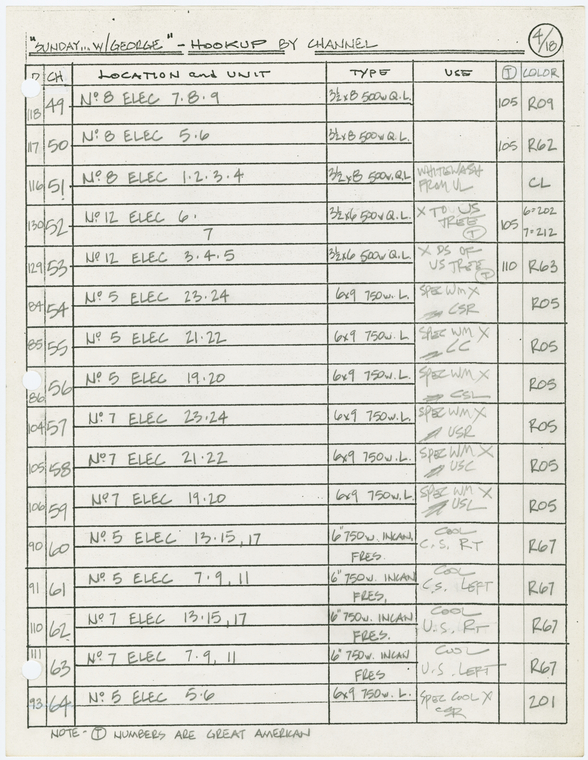 "SUNDAY... W/GEORGE" - HOOKUP BY CHANNEL 4/18
D CH. LOCATION and UNIT TYPE USE T COLOR
118 49 Nº 8 ELEC 7·8·9 3½x8 500w Q.L. 105 R09
117 50 Nº 8 ELEC 5·6 3½x8 500w Q.L. 105 R62
116 51 Nº 8 ELEC 1·2·3·4 3½x8 500w Q.L WHITEWASH CL
FROM UL
130 52 Nº 12 ELEC 6· 3½x6 500w Q.L. X TO US 105 6=202
7 TREE T 7=212
129 53 Nº 12 ELEC 3·4·5 3½x6 500w Q.L. X DS OF 110 R63
US TREE T
84 54 Nº 5 ELEC 23·24 6x9 750w. L. SPEC WM X R05
CSR
85 55 Nº 5 ELEC 21·22 6x9 750w. L. SPEC WM X R05
CC
86 56 Nº 5 ELEC 19·20 6x9 750w. L. SPEC WM X R05
CSL
104 57 Nº 7 ELEC 23·24 6x9 750w. L. SPEC WM X R05
USR
105 58 Nº 7 ELEC 21·22 6x9 750w. L. SPEC WM X R05
USC
106 59 Nº 7 ELEC 19·20 6x9 750w. L. SPEC WM X R05
USL
90 60 Nº 5 ELEC 13·15, 17 6" 750w. INCAN. COOL R67
FRES. C.S. RT
91 61 Nº 5 ELEC 7·9, 11 6" 750w. INCAN COOL R67
FRES, C.S. LEFT
110 62 Nº 7 ELEC 13·15, 17 6" 750w. INCAN COOL R67
FRES. U.S. RT
111 63 Nº 7 ELEC 7·9, 11 6" 750w. INCAN COOL R67
FRES U.S. LEFT
93 64 Nº 5 ELEC 5·6 6x9 750w. L. SPEC COOL X 201
CSR
NOTE - T NUMBERS ARE GREAT AMERICAN